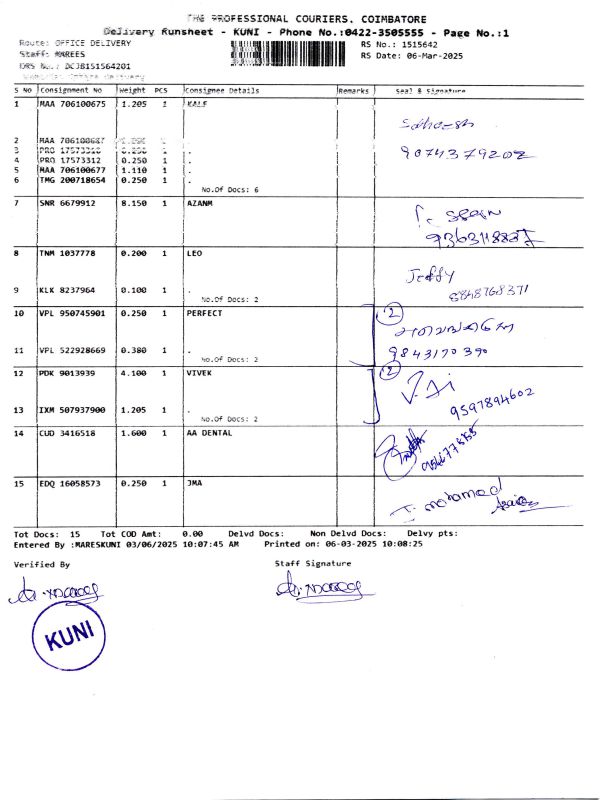 THE PROFESSIONAL COURIERS, COIMBATORE
Delivery Runsheet - KUNI - Phone No.:0422-3505555 - Page No.:1
Route: OFFICE DELIVERY
RS No.: 1515642
Staff: MAREES
RS Date: 06-Mar-2025
DRS No.: DCJB151564201
S No Consignment No Weight PCS Consignee Details Remarks Seal & Signature
1 MAA 706100675 1.205 1 KALF
2 MAA 706100687 1
9074379202
3 PRO 1
4 PRO 17573312 0.250 1 .
5 MAA 706100677 1.110 1 .
6 TMG 200718654 0.250 1 .
No.Of Docs: 6
7 SNR 6679912 8.150 1 AZANM
8 TNM 1037778 0.200 1 LEO
Jeffy
9 KLK 8237964 0.100 1 .
8848768371
No.Of Docs: 2
10 VPL 950745901 0.250 1 PERFECT
2
11 VPL 522928669 0.380 1 .
9843170390
No.Of Docs: 2
12 PDK 9013939 4.100 1 VIVEK
2
13 IXM 507937900 1.205 1 .
9597894602
No.Of Docs: 2
14 CUD 3416518 1.600 1 AA DENTAL
15 EDQ 16058573 0.250 1 JMA
J. mohamed
Tot Docs: 15 Tot COD Amt: 0.00 Delvd Docs: Non Delvd Docs: Delvy pts:
Entered By :MARESKUNI 03/06/2025 10:07:45 AM Printed on: 06-03-2025 10:08:25
Verified By
Staff Signature
KUNI